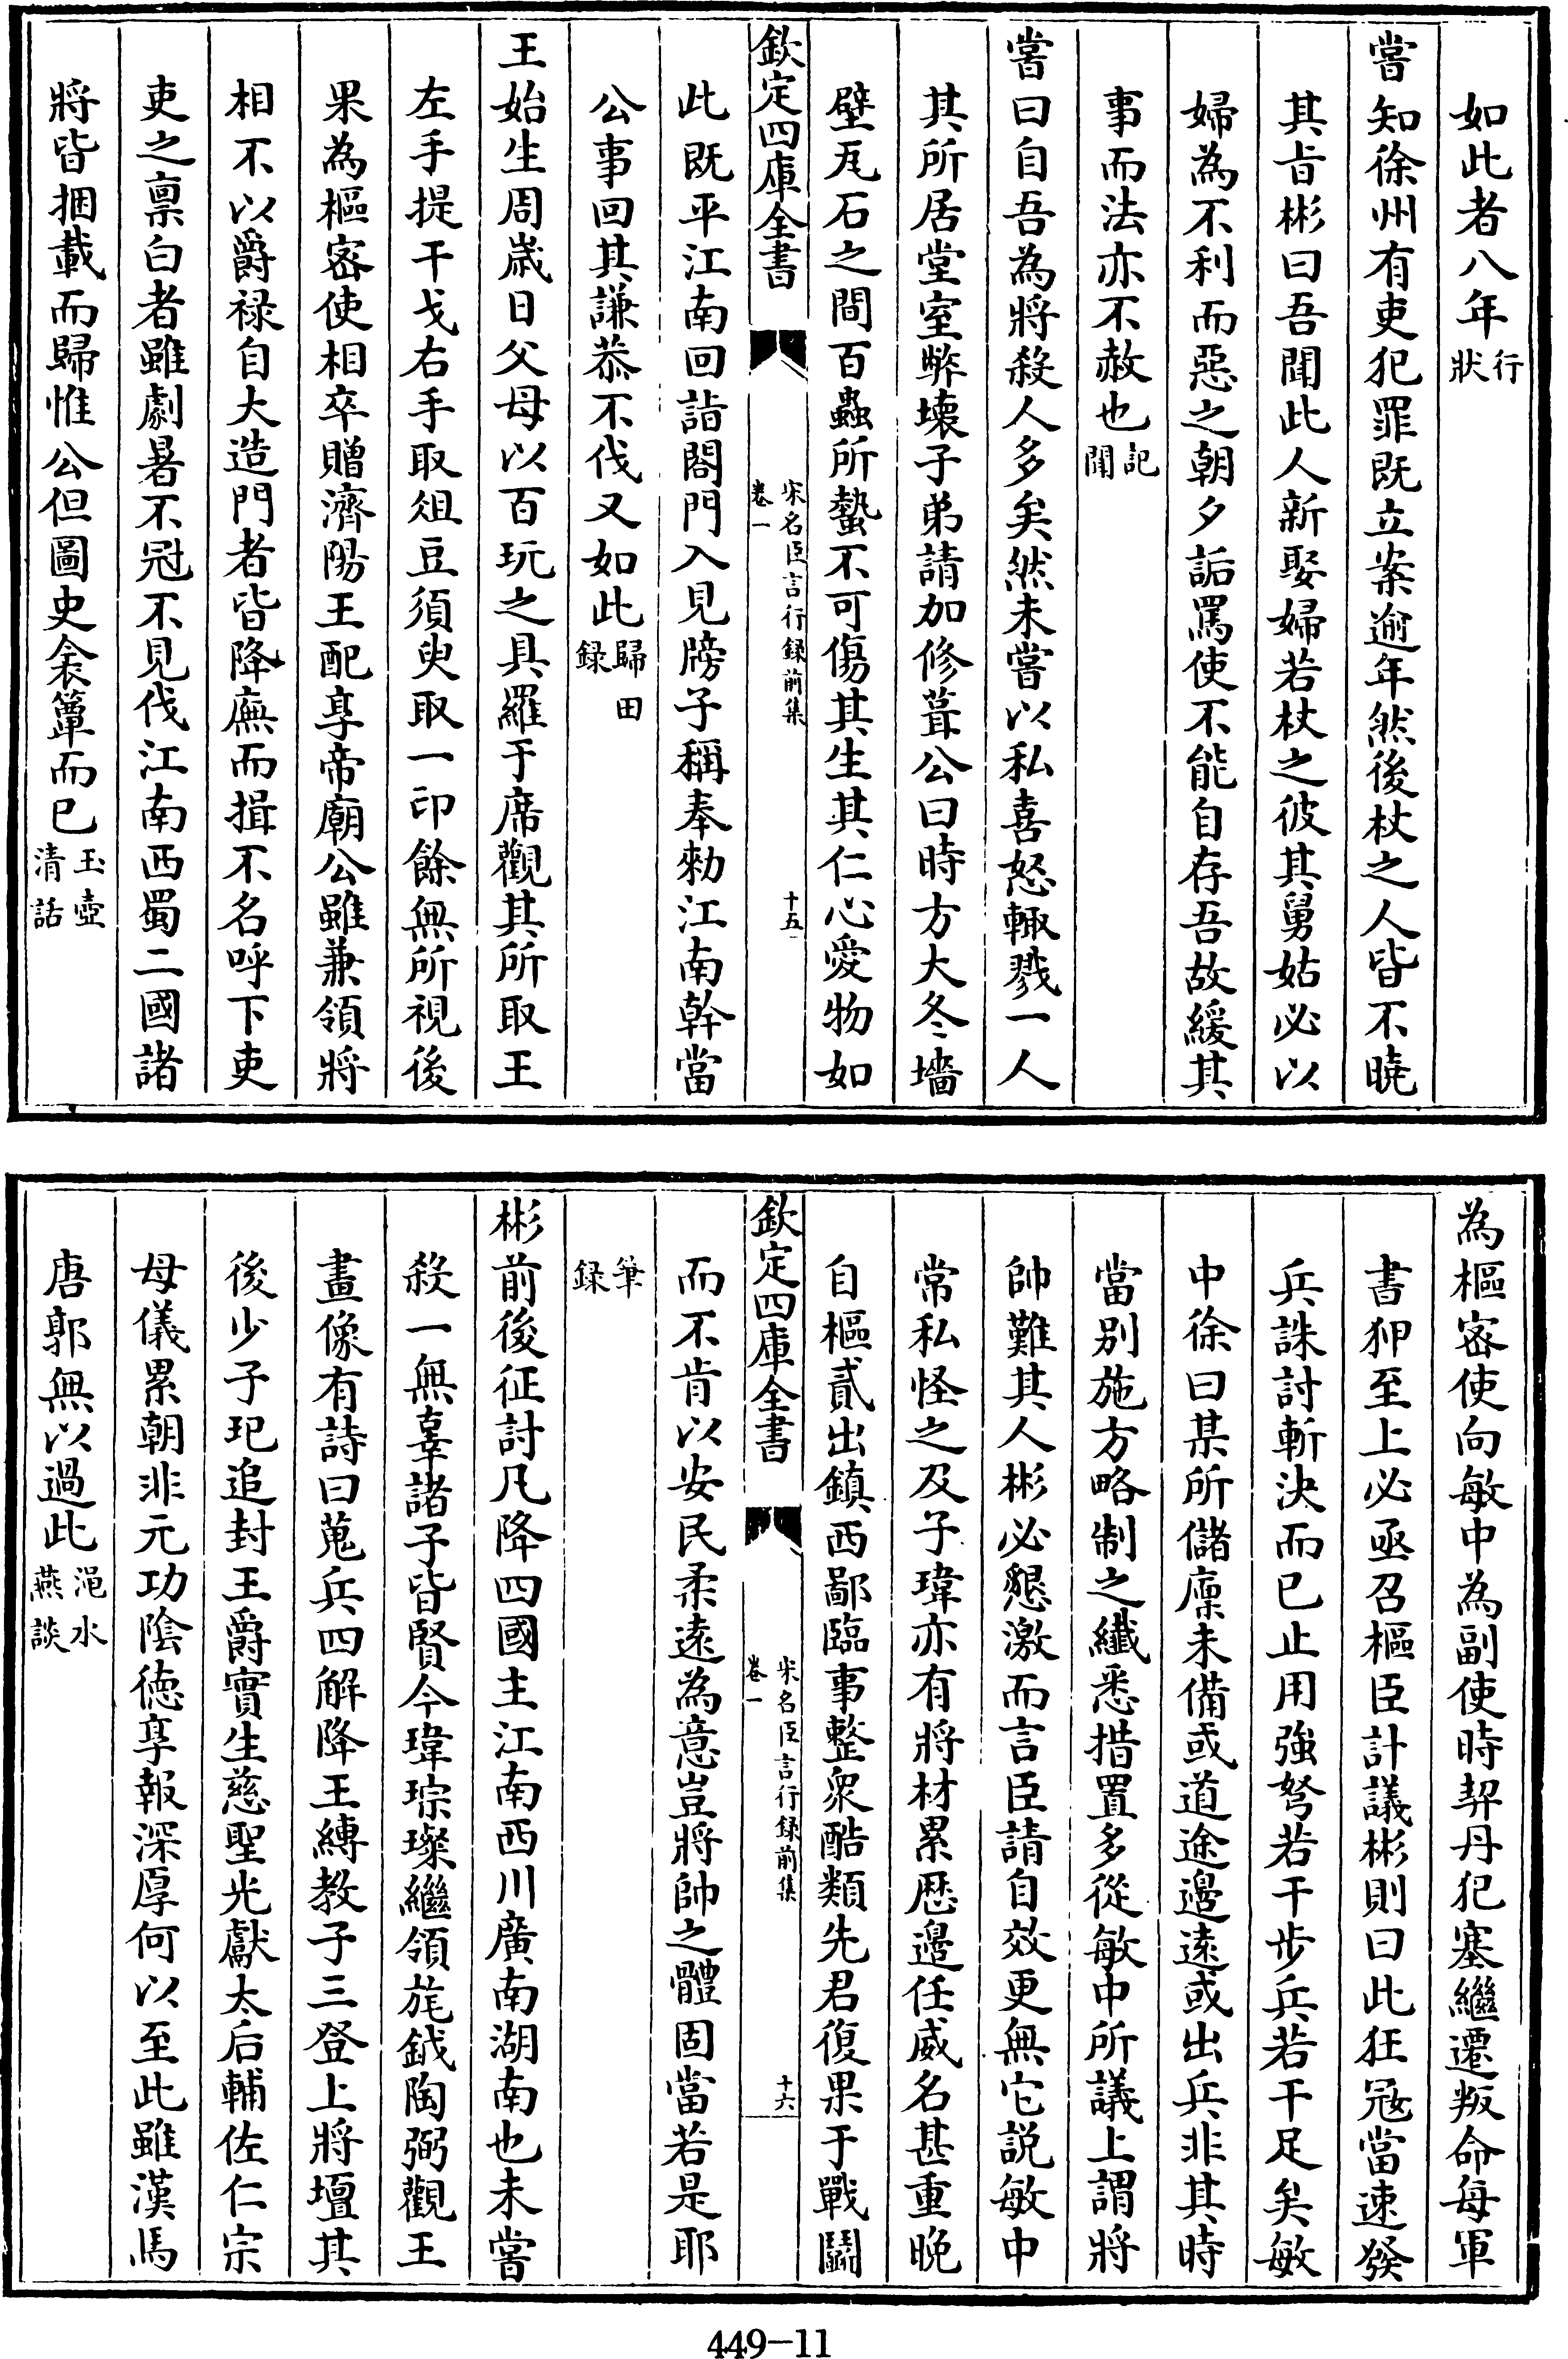 如此者八年行狀
嘗知徐州有吏犯罪既立案逾年然後杖之人皆不曉
其旨彬曰吾聞此人新娶婦若杖之彼其舅姑必以
婦為不利而惡之朝夕詬罵使不能自存吾故緩其
事而法亦不赦也記聞
嘗曰自吾為將殺人多矣然未嘗以私喜怒輒戮一人
其所居堂室弊壊子弟請加修葺公曰時方大冬墻
壁瓦石之間百蟲所蟄不可傷其生其仁心愛物如
欽定四庫全書
宋名臣言行録前集
卷一
十五
此既平江南回詣閤門入見牓子稱奉勅江南幹當
公事回其謙恭不伐又如此歸田録
王始生周歳日父母以百玩之具羅于席觀其所取王
左手提干戈右手取俎豆須臾取一印餘無所視後
果為樞宻使相卒贈濟陽王配享帝廟公雖兼領將
相不以爵禄自大造門者皆降廡而揖不名呼下吏
吏之禀白者雖劇暑不冠不見伐江南西蜀二國諸
將皆捆載而歸惟公但圖史衾簟而已玉壺清話
為樞宻使向敏中為副使時契丹犯塞繼遷叛命每軍
書狎至上必亟召樞臣計議彬則曰此狂冦當速發
兵誅討斬決而已止用強弩若干步兵若干足矣敏
中徐曰某所儲廩未備或道途邊遠或出兵非其時
當别施方略制之纎悉措置多從敏中所議上謂將
帥難其人彬必懇激而言臣請自效更無它説敏中
常私怪之及子瑋亦有將材累歴邊任威名甚重晚
自樞貳出鎮西鄙臨事整衆酷類先君復果于戰鬬
欽定四庫全書
宋名臣言行録前集
卷一
十六
而不肯以安民柔逺為意豈將帥之體固當若是耶
筆録
彬前後征討凡降四國主江南西川廣南湖南也未嘗
殺一無辜諸子皆賢今瑋琮璨繼領旄鉞陶弼觀王
畫像有詩曰蒐兵四解降王縛教子三登上將壇其
後少子玘追封王爵實生慈聖光獻太后輔佐仁宗
母儀累朝非元功隂徳享報深厚何以至此雖漢馬
唐郭無以過此渑水燕談
449-11